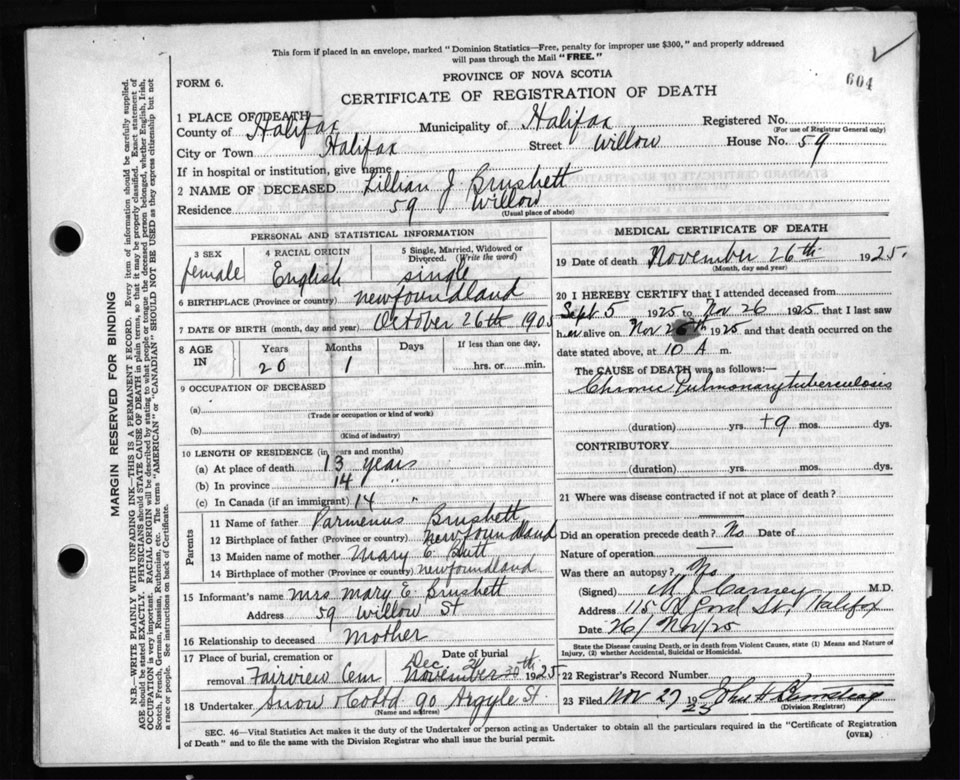 This form if placed in an envelope, marked "Dominion Statistics—Free, penalty for improper use $300," and properly addressed
will pass through the Mail "FREE."
604
FORM 6.
PROVINCE OF NOVA SCOTIA
CERTIFICATE OF REGISTRATION OF DEATH
1 PLACE OF DEATH
County of Halifax Municipality of Halifax Registered No.
(For use of Registrar General only)
City or Town Halifax Street Willow House No. 59
If in hospital or institution, give name
2 NAME OF DECEASED Lillian J Brushett
Residence 59 Willow
(Usual place of abode)
PERSONAL AND STATISTICAL INFORMATION
3 SEX 4 RACIAL ORIGIN 5 Single, Married, Widowed or
Divorced. (Write the word)
female English single
6 BIRTHPLACE (Province or country) Newfoundland
7 DATE OF BIRTH (month, day and year) October 26th 1905
8 AGE IN Years Months Days If less than one day,
20 1 hrs. or min.
9 OCCUPATION OF DECEASED
(a)
(Trade or occupation or kind of work)
(b)
(Kind of industry)
10 LENGTH OF RESIDENCE (in years and months)
(a) At place of death 13 years
(b) In province 14 "
(c) In Canada (if an immigrant) 14 "
Parents
11 Name of father Parmenus Brushett
12 Birthplace of father (Province or country) Newfoundland
13 Maiden name of mother Mary E. Butt
14 Birthplace of mother (Province or country) Newfoundland
15 Informant's name Mrs Mary E Brushett
Address 59 Willow St
16 Relationship to deceased Mother
17 Place of burial, cremation or Date of burial
Dec 2
removal Fairview Cem November 30th 1925
18 Undertaker Snow & Co Ltd 90 Argyle St.
(Name and address)
MEDICAL CERTIFICATE OF DEATH
19 Date of death November 26th 1925.
(Month, day and year)
20 I HEREBY CERTIFY that I attended deceased from
Sept 5 1925 to Nov 26 1925 that I last saw
her alive on Nov 26th 1925 and that death occurred on the
date stated above, at 10 A m.
The CAUSE of DEATH was as follows:—
Chronic Pulmonary tuberculosis
(duration) yrs. +9 mos. dys.
CONTRIBUTORY
(duration) yrs. mos. dys.
21 Where was disease contracted if not at place of death?
Did an operation precede death? No Date of
Nature of operation
Was there an autopsy? No
(Signed) M J Carney M.D.
Address 115 St, Halifax
Date 26/Nov/25
State the Disease causing Death, or in death from Violent Causes, state (1) Means and Nature of
Injury, (2) whether Accidental, Suicidal or Homicidal.
22 Registrar's Record Number
23 Filed Nov 27 1925 John H
(Division Registrar)
SEC. 46—Vital Statistics Act makes it the duty of the Undertaker or person acting as Undertaker to obtain all the particulars required in the "Certificate of Registration
of Death" and to file the same with the Division Registrar who shall issue the burial permit.
(OVER)
MARGIN RESERVED FOR BINDING
N.B.—WRITE PLAINLY WITH UNFADING INK—THIS IS A PERMANENT RECORD. Every item of information should be carefully supplied.
AGE should be stated EXACTLY. PHYSICIANS should STATE CAUSE OF DEATH in plain terms, so that it may be properly classified. Exact statement of
OCCUPATION is very important. RACIAL ORIGIN will be described by stating to what people or tongue the deceased person belonged, whether English, Irish,
Scotch, French, German, Russian, Ruthenian, etc. The terms "AMERICAN" or "CANADIAN" SHOULD NOT BE USED as they express citizenship but not
a race or people. See instructions on back of Certificate.